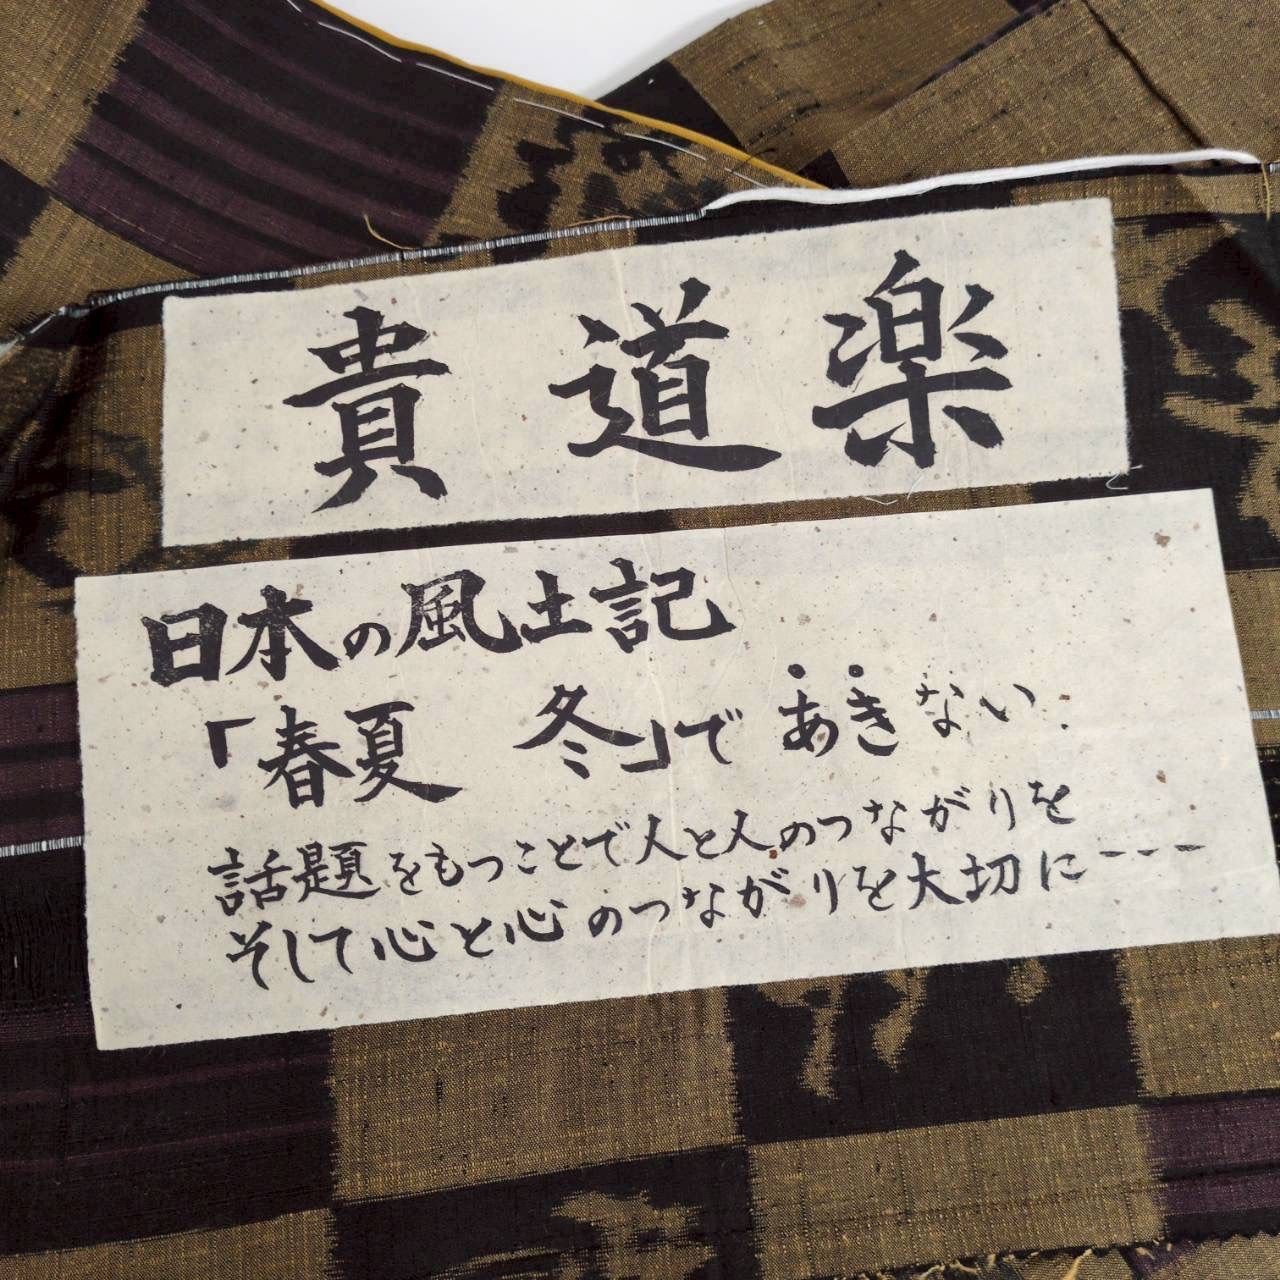 貴道楽
日本の風土記
「春夏　冬」であきない
話題をもつことで人と人のつながりを
そして心と心のつながりを大切に---